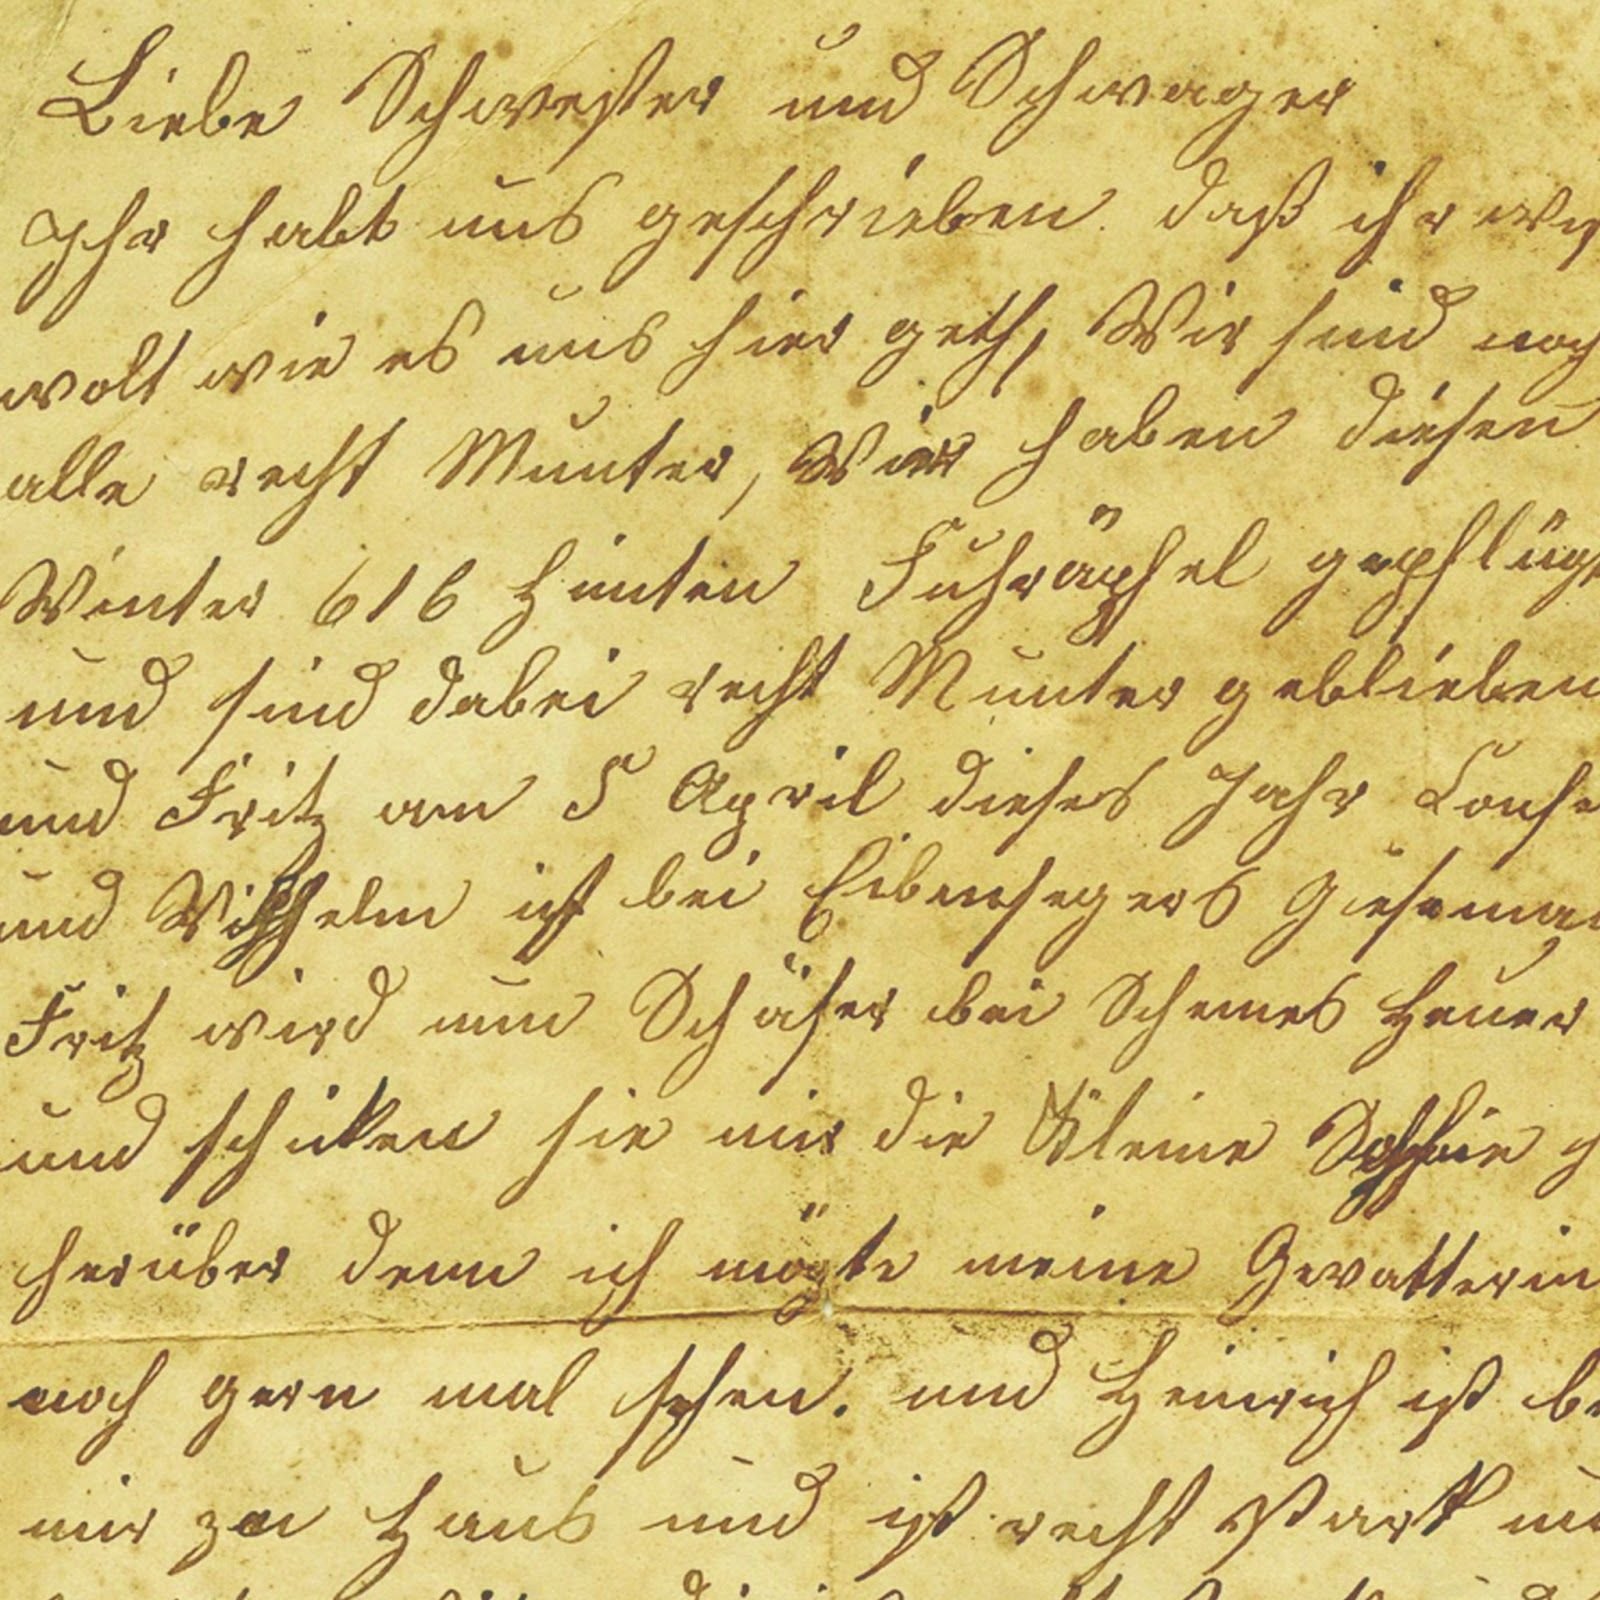 Liebe Schwester und Schwager
Ihr habt uns geschrieben daß ihr
wolt wie es uns hier geth, Wir sind noch
alle recht Munter, Wir haben diesen
Winter 616 Himten Fuhräpfel gepflügt
und sind dabei recht Munter geblieben
und Fritz am 5 April dieses Jahr
und Wilhelm ist bei
Fritz wird nun Schäfer bei Heuer
und schicken sie mir die Kleine Sophie
herüber denn ich mögte meine Gevatterin
noch gern mal sehen. und Heinrich ist
mir zu Haus und ist recht stark